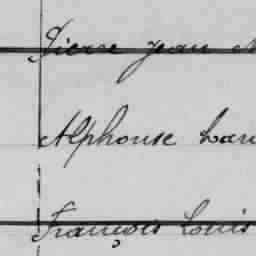 Pierre Jean
Alphonse
François Louis